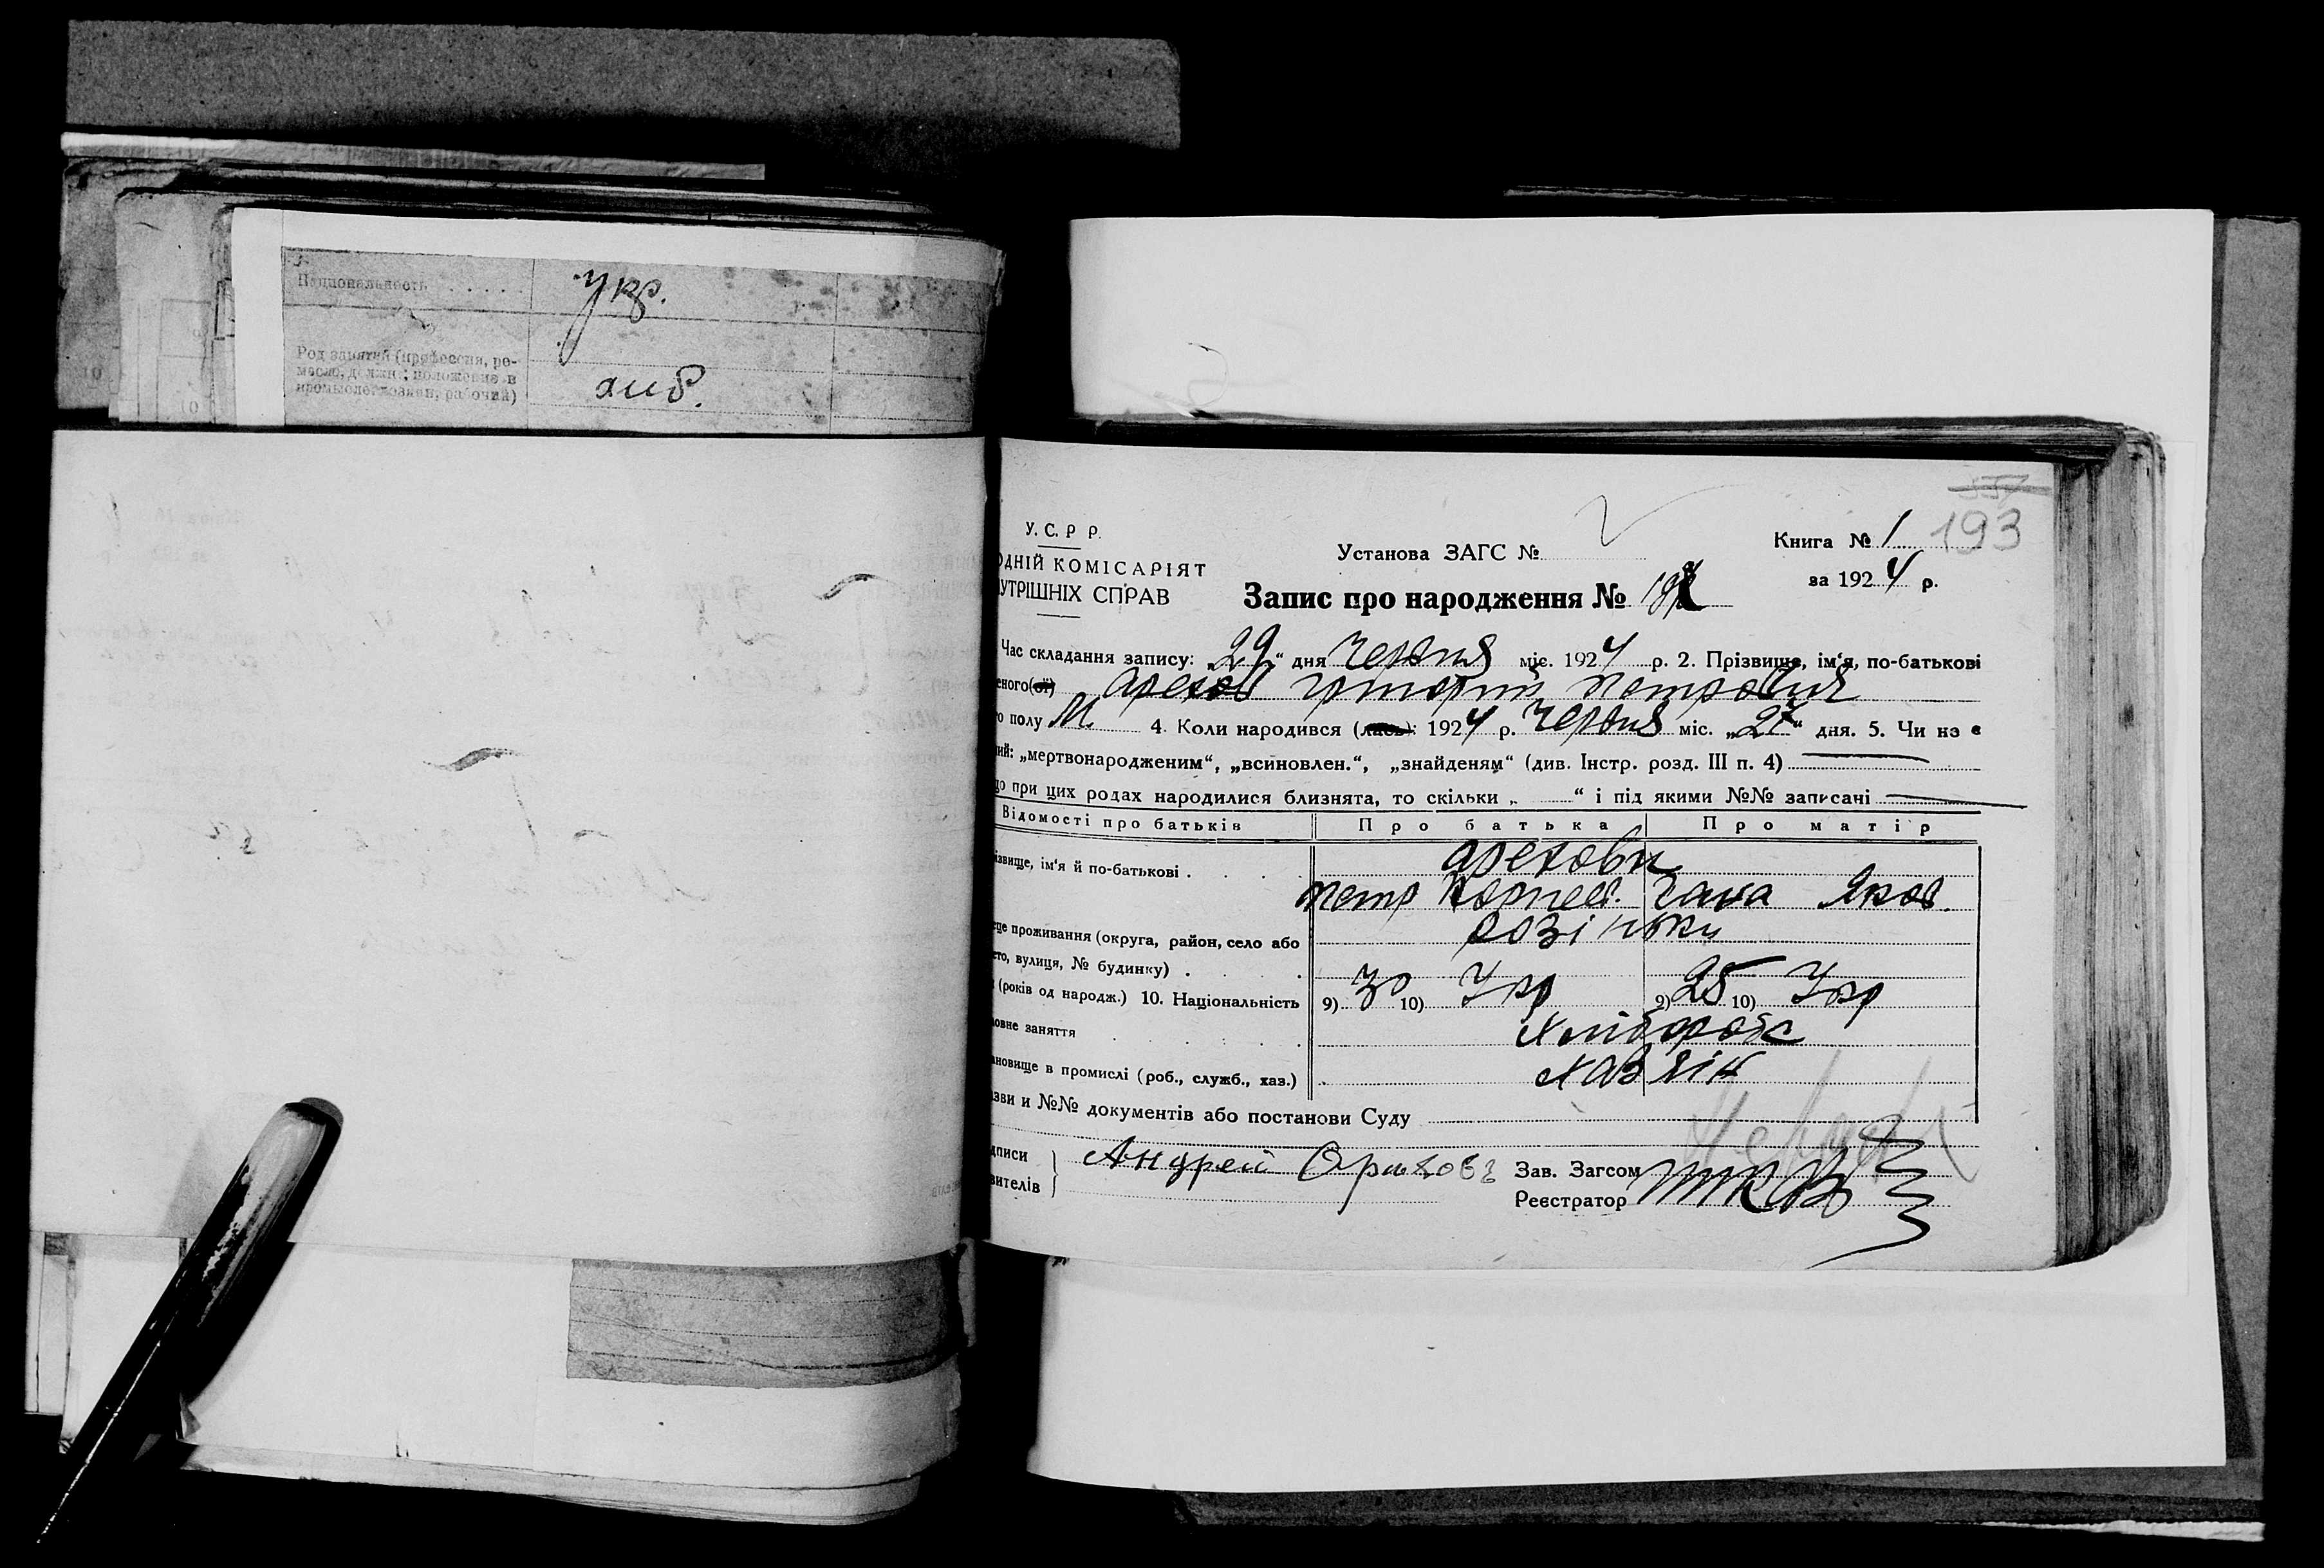 Национальность . . . . . укр.
Род занятий (профессия, ре-
месло, должн.; положение в
промысле: хозяин, рабочий)
хліб.
557
193
У. С. Р Р.
ОДНІЙ КОМІСАРІЯТ
УТРІШНІХ СПРАВ
Установа ЗАГС №
Книга № 1
за 1924 р.
Запис про народження №
Час складання запису: „29“ дня Червня міс. 1924 р. 2. Прізвище, ім‘я, по-батькові
еного(ої) Орехов Григорій Петрович
о полу М. 4. Коли народився (лась): 1924 р. Червня міс. „27“ дня. 5. Чи не є
ий: „мертвонародженим“, „всиновлен.“, „знайденям“ (див. Інстр. розд. III п. 4)
що при цих родах народилися близнята, то скільки „ “ і під якими №№ записачі
Відомості про батьків Про батька Про матір
ізвище, ім‘я й по-батькові . Орехови
Петр Корнеев. Гана Яков.
це проживання (округа, район, село або
сто, вулиця, № будинку) . Розіньки
(років од народж.) 10. Національність 9) 30 10) Укр 9) 25 10) Укр
овне заняття Хлібороб
ановище в промислі (роб., служб., хаз.) Хазяін
зви и №№ документів або постанови Суду
дписи
вителів
Андрей Орихов
Зав. Загсом
Реєстратор